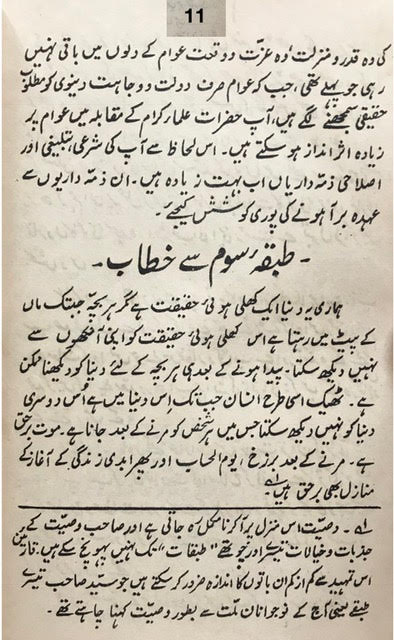 11
کی وہ قدر و منزلت وہ عزّت و وقعت عوام کے دلوں میں باقی نہیں
رہی جو پہلے تھی، جب کہ عوام صرف دولت و وجاہت دنیوی کو مطلوبِ
حقیقی سمجھنے لگے ہیں، آپ حضرات علمار کرام کے مقابلہ میں عوام پر
زیادہ اثر انداز ہو سکتے ہیں۔ اس لحاظ سے آپ کی شرعی، تبلیغی اور
اصلاحی ذمّہ داریاں اب بہت زیادہ ہیں۔ ان ذمّہ داریوں سے
عہدہ برآ ہونے کی پوری کوشش کیجئے۔
- طبقۂ سوم سے خطاب -
ہماری یہ دنیا ایک کھلی ہوئی حقیقت ہے مگر ہر بچّہ جبتک ماں
کے پیٹ میں رہتا ہے اس کھلی ہوئی حقیقت کو اپنی آنکھوں سے
نہیں دیکھ سکتا۔ پیدا ہونے کے بعد ہی ہر بچہ کے لئے دنیا کو دیکھنا ممکن
ہے۔ ٹھیک اسی طرح انسان جب تک اِس دنیا میں ہے اُس دوسری
دنیا کو نہیں دیکھ سکتا جس میں ہر شخص کو مرنے کے بعد جانا ہے۔ موت برحق
ہے۔ مرنے کے بعد برزخ، یوم الحساب اور پھر ابدی زندگی کے آغاز کے
منازل بھی برحق ہیں۔ لے
لے۔ وصیت اس منزل پر آ کر نا مکمل رہ جاتی ہے اور صاحب وصیت کے
جذبات و خیالات تیسرے اور چوتھے "طبقات" تک نہیں پہونچ سکے ہیں۔ قارئین
اس تمہید سے کم از کم ان باتوں کا اندازہ ضرور کر سکتے ہیں جو سیّد صاحب تیسرے
طبقے یعنی آج کے نوجوانان ملّت سے بطور وصیت کہنا چاہتے تھے۔